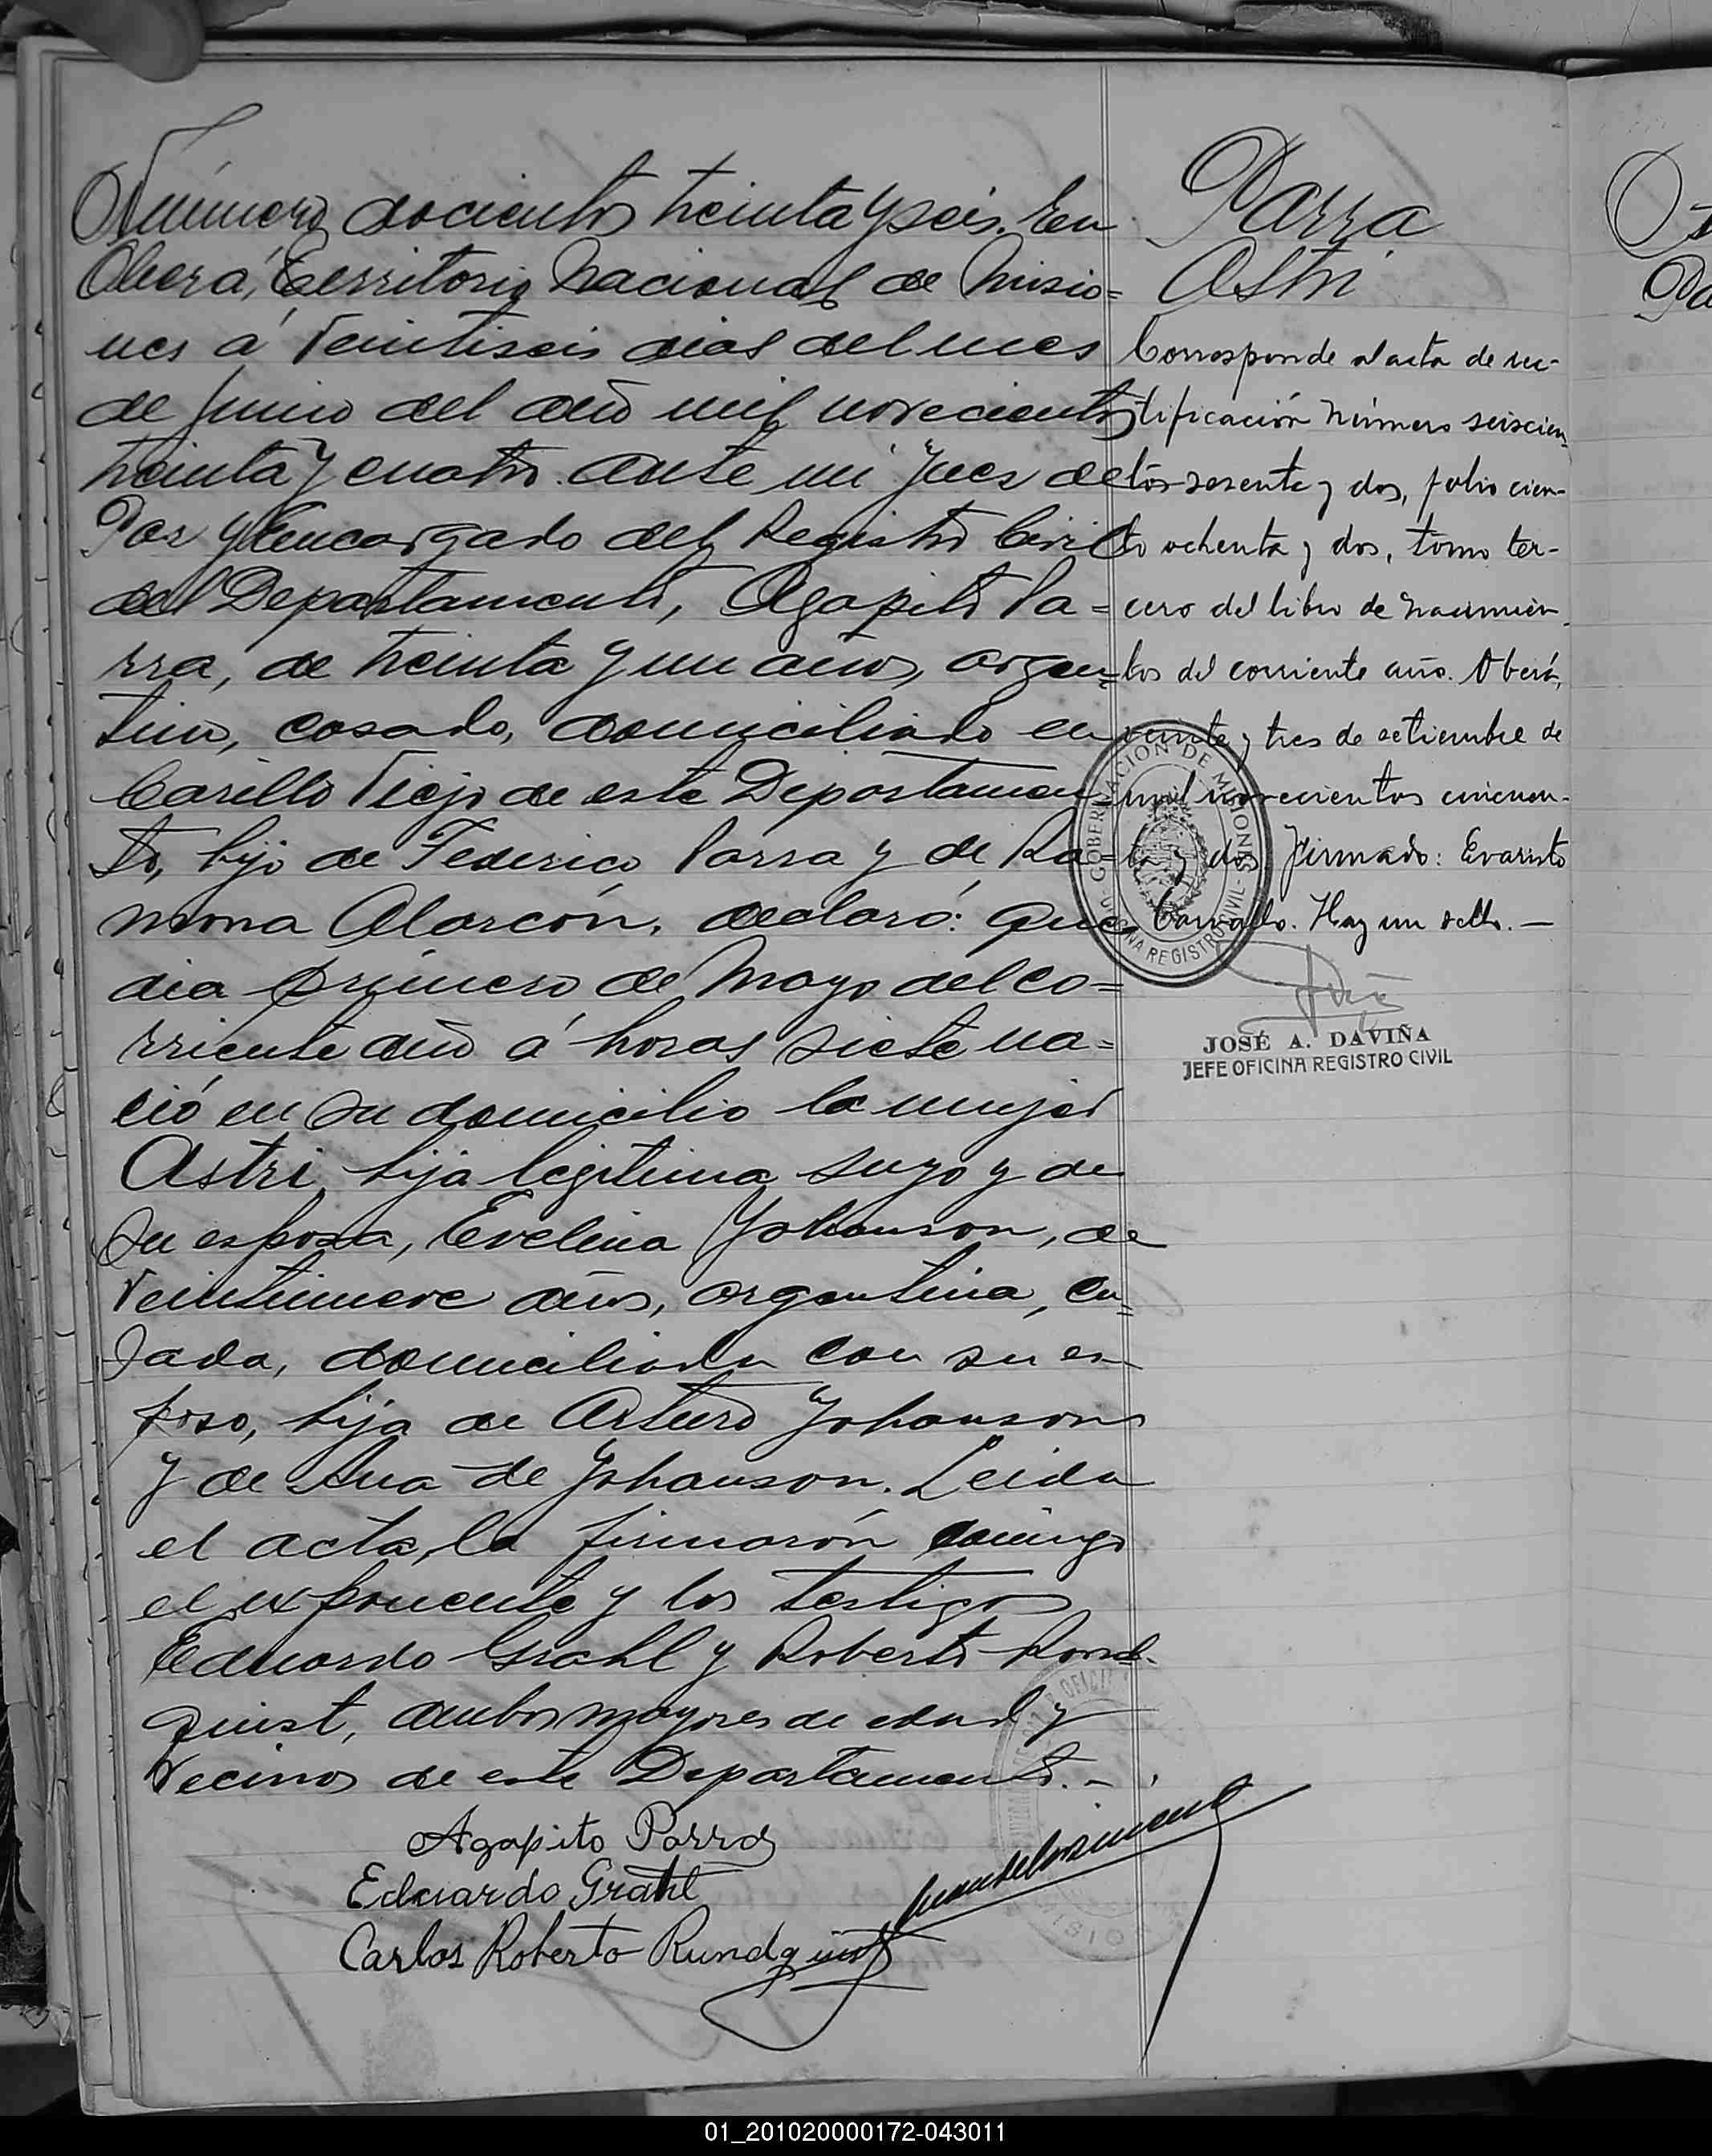 Número docientos treinta y seis. En
Oberá, Territorio Nacional de Misio=
nes á veintiseis dias del mes
de Junio del año mil novecientos
treinta y cuatro. Ante mi Juez de
Paz y Encargado del Registro Civil
del Departamento, Agapito Pa=
rra, de treinta y un años, argen=
tino, casado, domiciliado en
Carillo Viejo de este Departamen
to, hijo de Federico Parra y de Ra=
mona Alarcón, declaró: Que
dia primero de Mayo del co=
rriente año á horas siete na=
ció en su domicilio la mujer
Astri, hija legitima suya y de
su esposa, Evelina Yohanson, de
veintinueve años, argentina, ca=
sada, domiciliada con su es
poso, hija de Arturo Yohanson
y de Ana de Yohanson. Leida
el acta, la firmarón conmigo
el exponente y los testigos
Eduardo Grahl y Roberto Rund
quist, ambos mayores de edad y
vecinos de este Departamento.-
Agapito Parra
Eduardo Grahl
Carlos Roberto Rundquist
Parra
Astri
Corresponde al acta de rec-
tificación número seiscien
tos sesenta y dos, folio cien-
to ochenta y dos, tomo ter-
cero del libro de nacimien
tos del corriente año. Oberá,
veinte y tres de setiembre de
mil novecientos cincuen-
ta y dos. Firmado: Evaristo
Carvallo. Hay un sello. —
GOBERNACION DE MISIONES
OFICINA REGISTRO CIVIL
JOSÉ A. DAVIÑA
JEFE OFICINA REGISTRO CIVIL
01_201020000172-043011